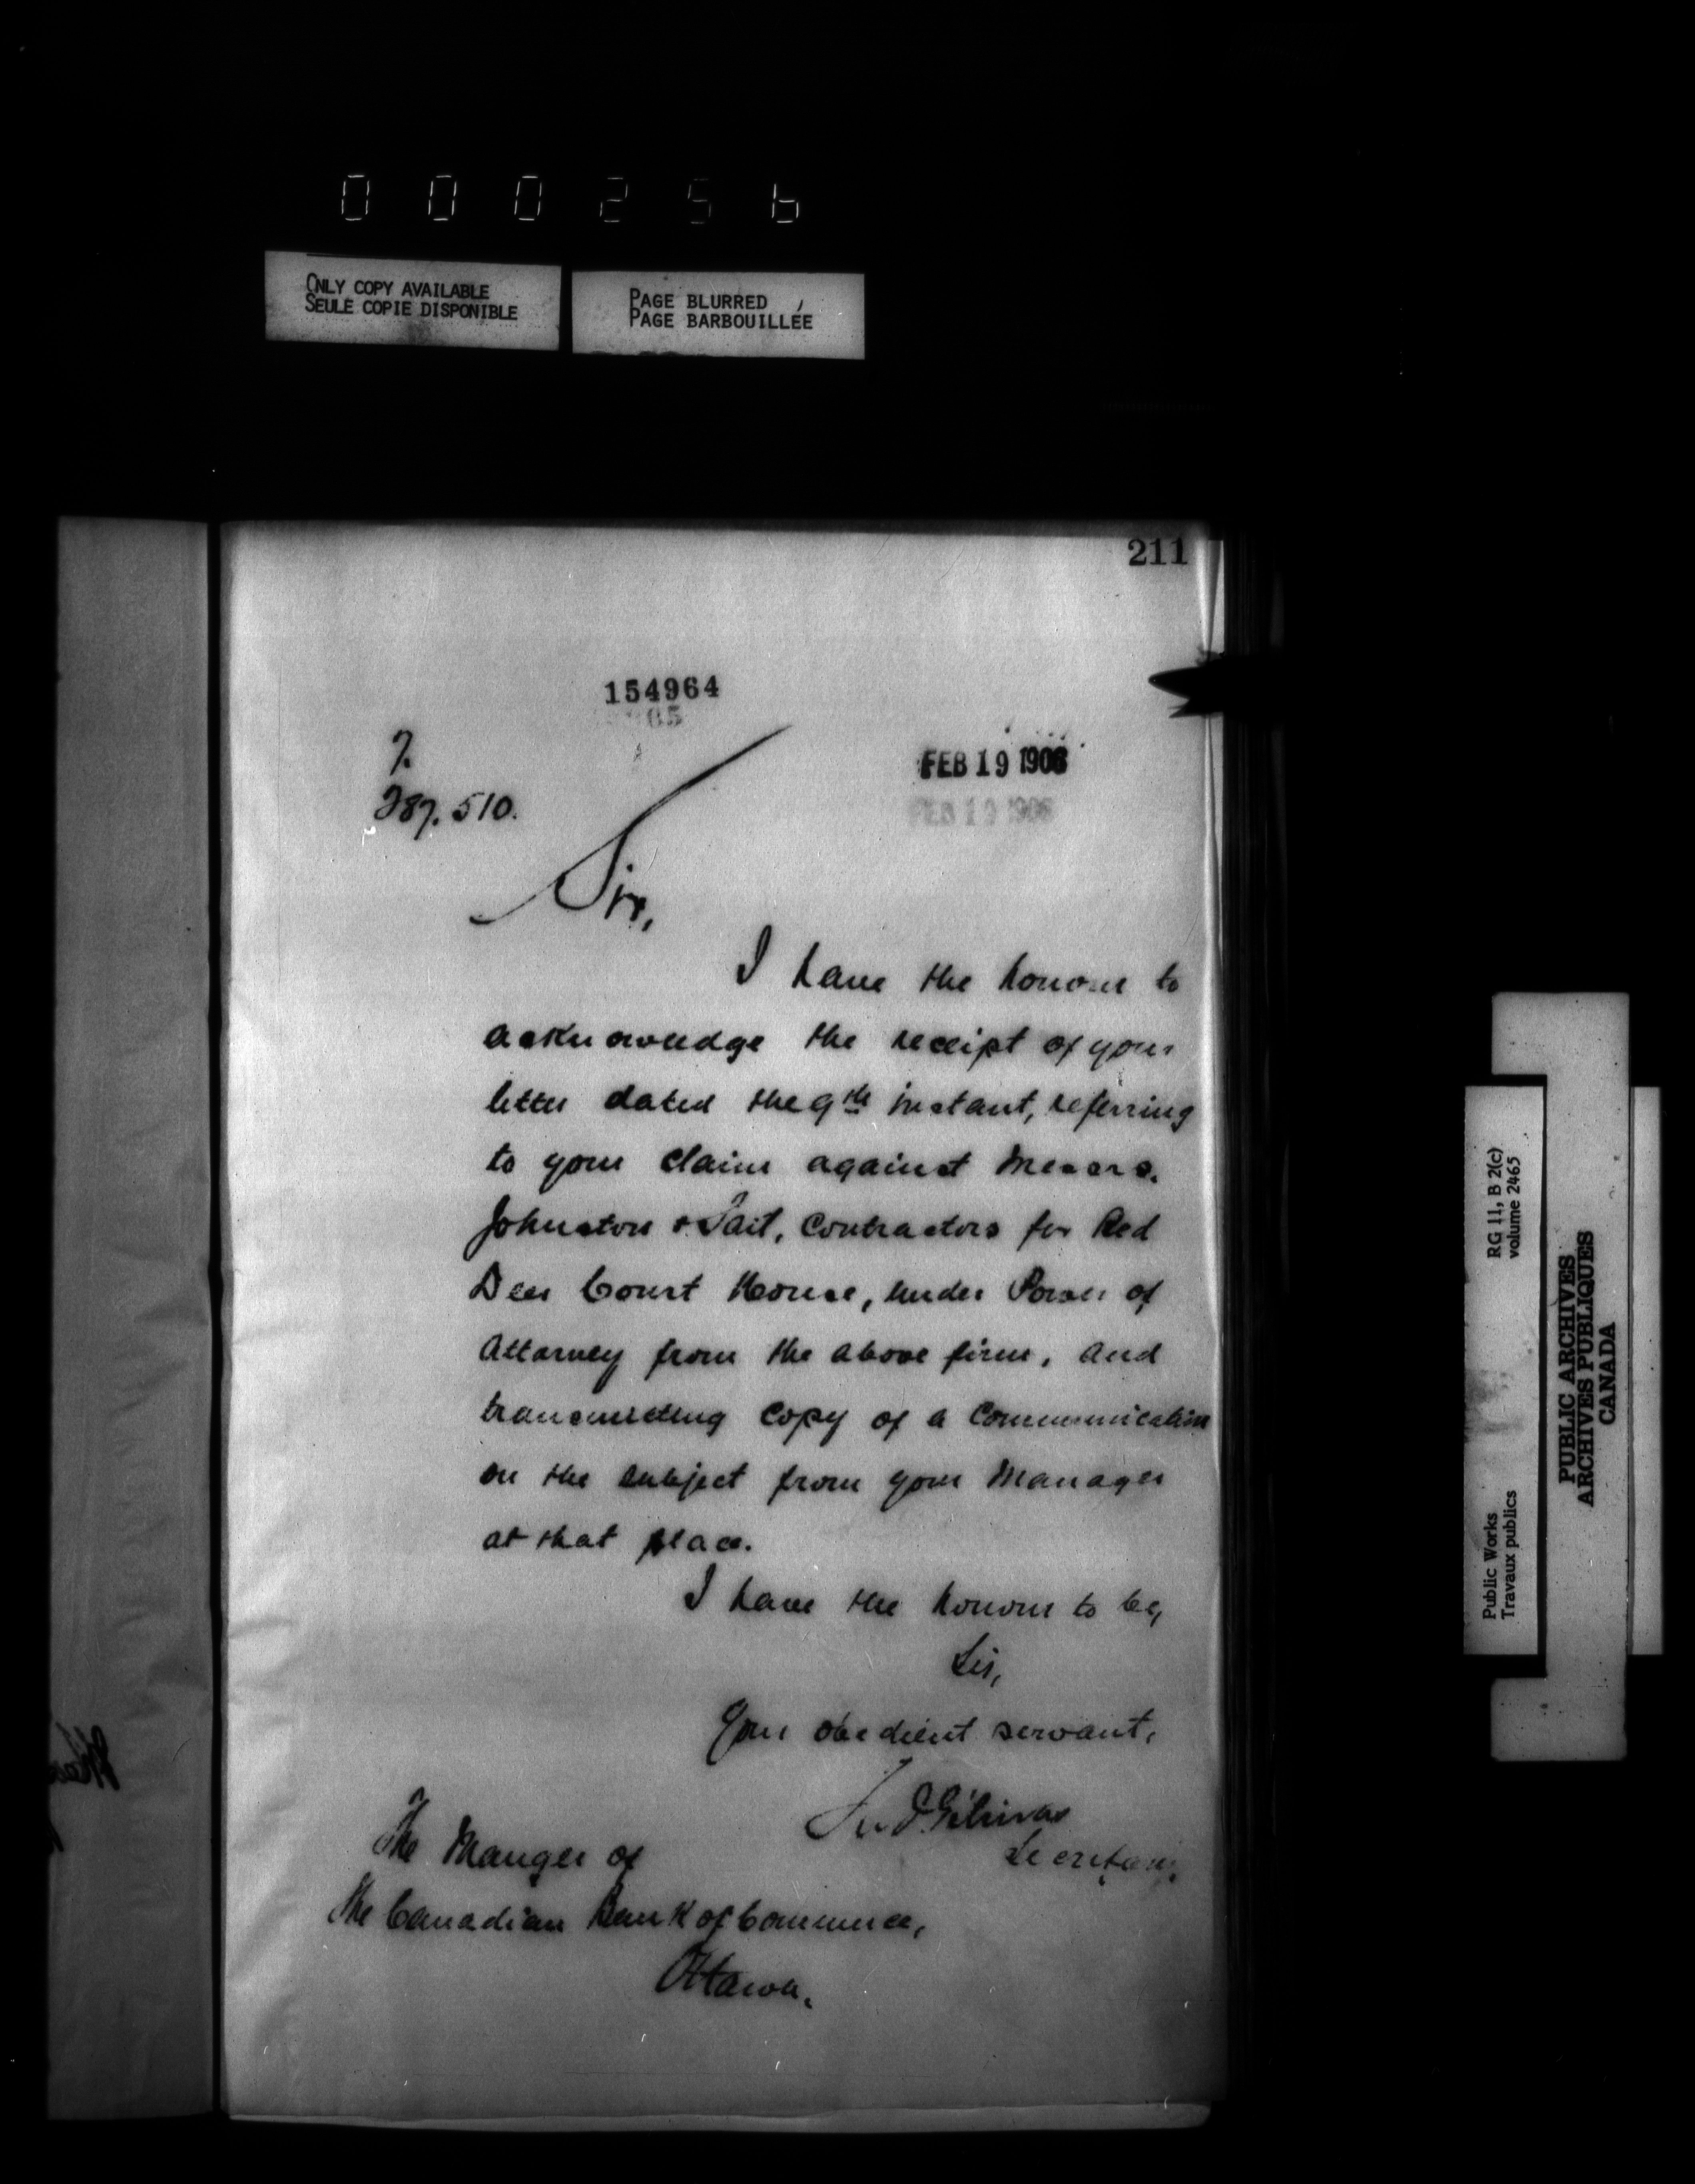 000256
ONLY COPY AVAILABLE
SEULE COPIE DISPONIBLE
PAGE BLURRED
PAGE BARBOUILLÉE
211
154964
FEB 19 1906
FEB 19 1906
287.510.
Sir,
I have the honour to
acknowledge the receipt of your
letter dated the 9th instant, referring
to your claim against Messrs.
Johnston & Tait, Contractors for Red
Deer Court House, under Power of
Attorney from the above firm, and
transmitting copy of a Communication
on the subject from your Manager
at that place.
I have the honour to be,
Sir,
Your obedient servant,
Secretary.
The Manger of
The Canadian Bank of Commerce,
Ottawa.
RG 11, B 2(c)
volume 2465
Public Works
Travaux publics
PUBLIC ARCHIVES
ARCHIVES PUBLIQUES
CANADA